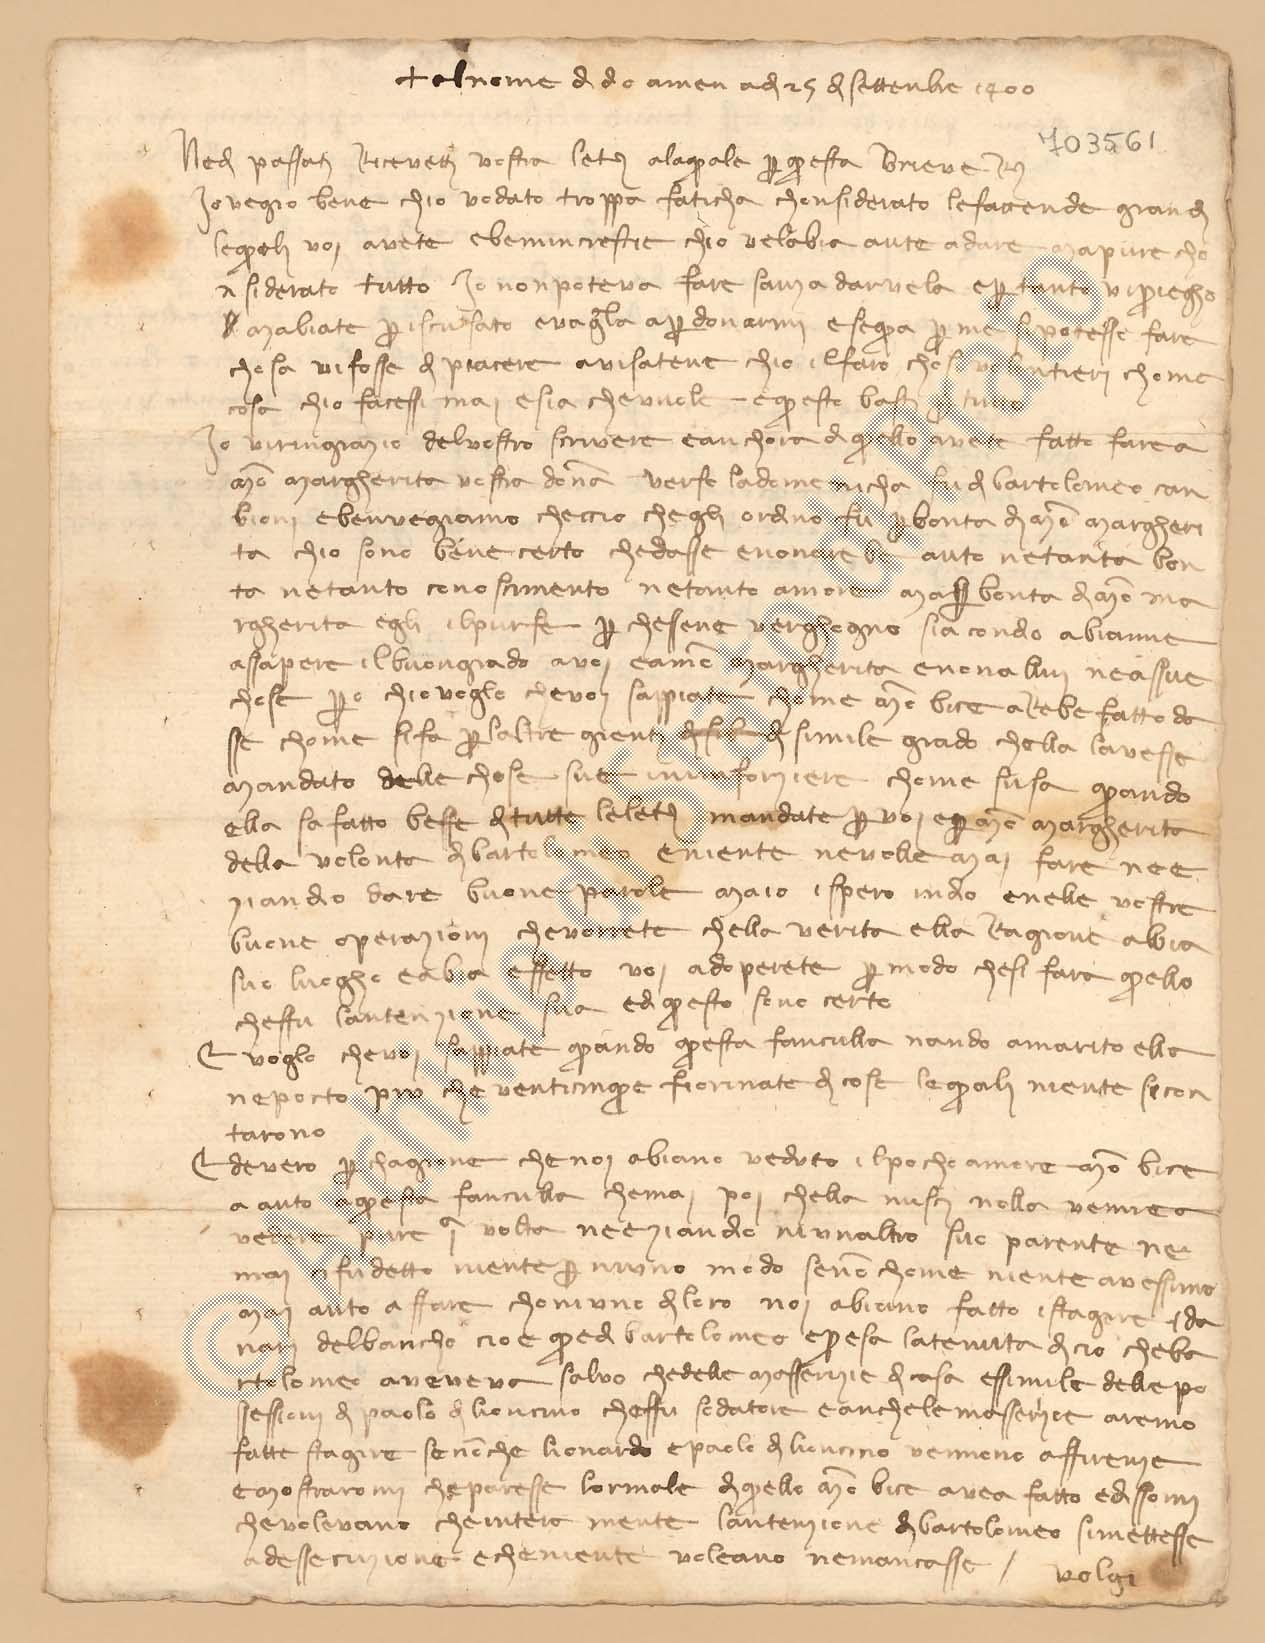 + al nome di dio amen a dì 25 di settenbre 1400
703561
Nedì passati Ricevetti vostra letera ala quale per questa brieve R
Io vegio bene chio vo dato troppa faticha chonsiderato le faccende grandi
le quali voi avete e ben mincrescie chio vel abia aute a dare ma pure cho
nsiderato tutto Io non poteva fare sanza darvela e per tanto vi priegho
mabiate per iscusato e vagla a perdonarmi e se qua per me si potesse fare
chosa vi fosse di piacere avisatene chio il faro chosi volentieri chome
cosa chio facessi mai e sia che vuole e questo basti per tutto
Io viringrazio del vostro scrivere e anchora di quello avete fatto fare a
mona margherita vostra dona verso la domenicha fu di bartolomeo can
bioni e ben vegiamo che ccio chegli ordino fu per bonta di mona margheri
ta chio sono bene certo che da sse e non are be auto ne tanta bon
ta ne tanto conoscimento ne tanto amore ma per bonta di mona ma
rgherita egli il pur fe per che sene verghogno sia condo abianne
assapere il buon grado a voi e a mona margherita e non a llui ne a ssue
chose pero chio voglo che voi sappiate chome mona bice arebe fatto da
sse chome si fa per laltre gienti di simile grado chella lavesse
mandato delle chose sue in un forziere chome susa quando
ella sa fatto beffe di tutte le letere mandate per voi e per mona margherita
della volonta di bartolomeo e niente ne volle mai fare ne e
ziandio dare buone parole ma io ispero in dio e nelle vostre
buone operazioni che vorrete chella verita ella Ragione abia
suo luogho e abia effetto voi adoperete per modo che si fara quello
che ffu lantenzione sua e di questo sono certo
E voglo che voi sappiate quando questa fanciulla nando a marito ella
ne porto piu che venticinque fiorinate di cose le quali niente si con
tarono
E de vero per chagione che noi abiano veduto il pocho amore mona bice
a auto a questa fanciulla che mai poi chella nusci nolla venne a
vedere pure 1a volta ne eziandio niun altro suo parente ne
mai ci fu detto niente per niuno modo se non chome niente avessimo
mai auto affare chon niuno di loro noi abiamo fatto istagire i da
nari del bancho cioe que di bartolomeo e presa la tenuta di cio che ba
rtolomeo aveva salvo che delle masserizie di casa essimile delle po
ssessioni di paolo di lioncino che ffu sodatore e anche le masserizie aremo
fatte stagire se non che lionardo e paolo di lioncino vennono a ffirenze
e mostraronmi che paresse lor male di quello mona bice avea fatto e dissonmi
che volevano che intera mente lantenzione di bartolomeo si mettesse
ad essecuzione e che niente voleano ne mancasse /
volgi
© Archivio di Stato di Prato